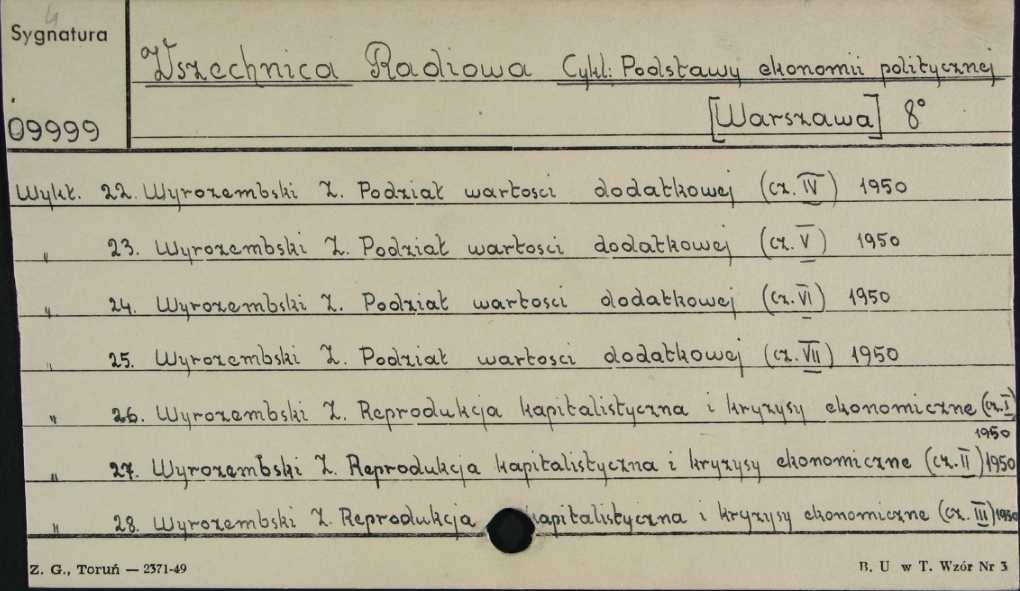 4
Sygnatura
09999
Wszechnica Radiowa Cykl: Podstawy ekonomii politycznej
[Warszawa] 8°
Wykł. 22. Wyrozembski Z. Podział wartosci dodatkowej (cz. IV) 1950
" 23. Wyrozembski Z. Podział wartosci dodatkowej (cz. V) 1950
" 24. Wyrozembski Z. Podział wartosci dodatkowej (cz. VI) 1950
" 25. Wyrozembski Z. Podział wartosci dodatkowej (cz. VII) 1950
" 26. Wyrozembski Z. Reprodukcja kapitalistyczna i kryzysy ekonomiczne (cz. I) 1950
" 27. Wyrozembski Z. Reprodukcja kapitalistyczna i kryzysy ekonomiczne (cz. II) 1950
" 28. Wyrozembski Z. Reprodukcja kapitalistyczna i kryzysy ekonomiczne (cz. III) 1950
Z. G., Toruń — 2371-49
B. U w T. Wzór Nr 3